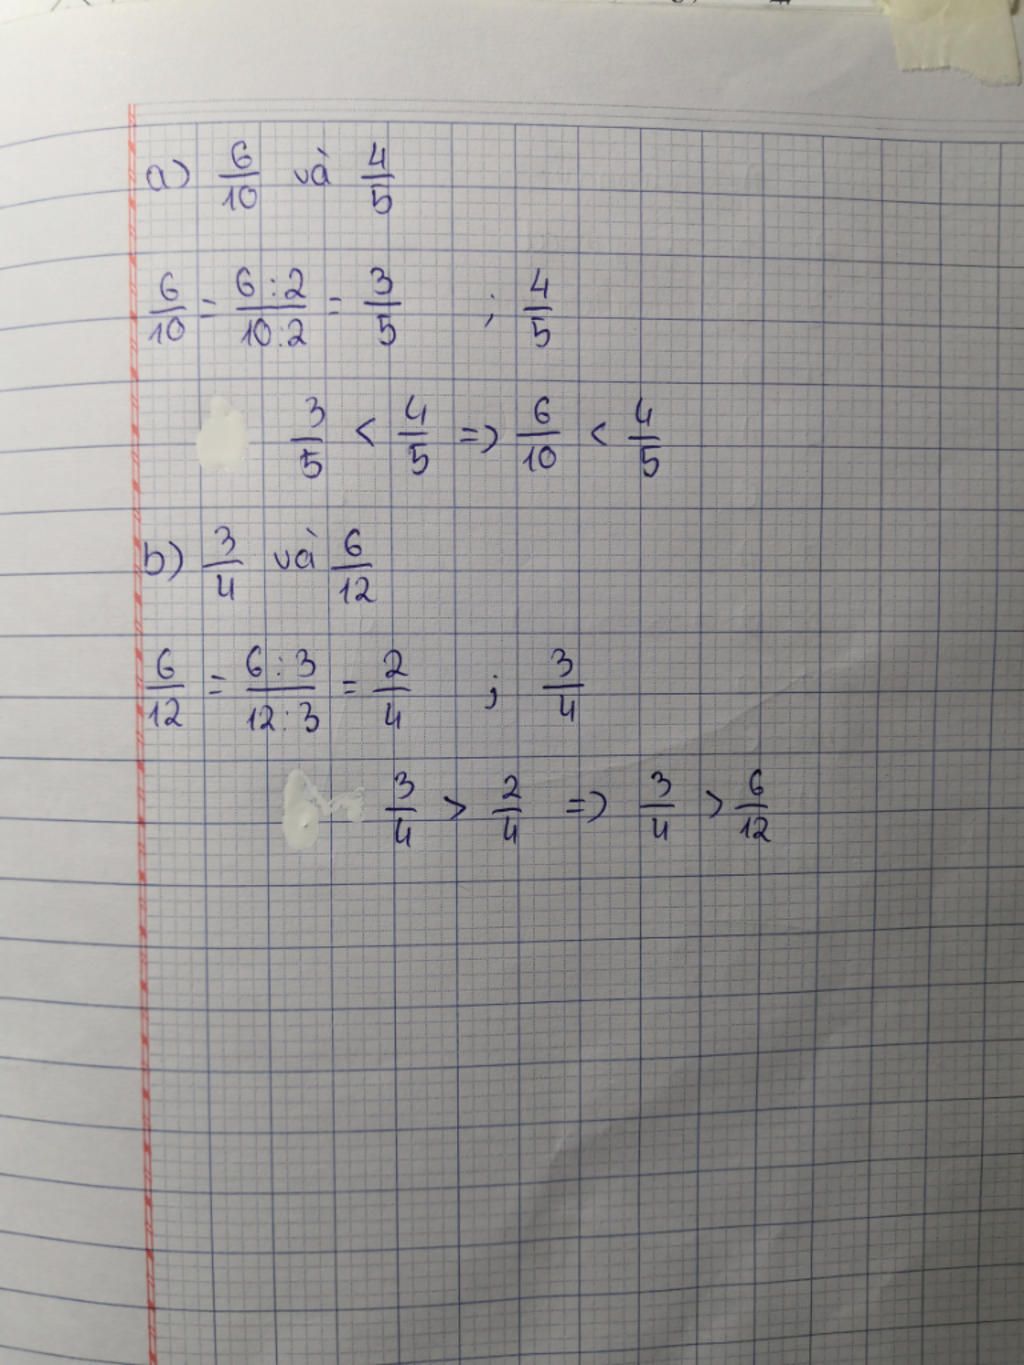 a) 6/10 và 4/5
6/10 = 6:2/10:2 = 3/5 ; 4/5
3/5 < 4/5 => 6/10 < 4/5
b) 3/4 và 6/12
6/12 = 6:3/12:3 = 2/4 ; 3/4
3/4 > 2/4 => 3/4 > 6/12